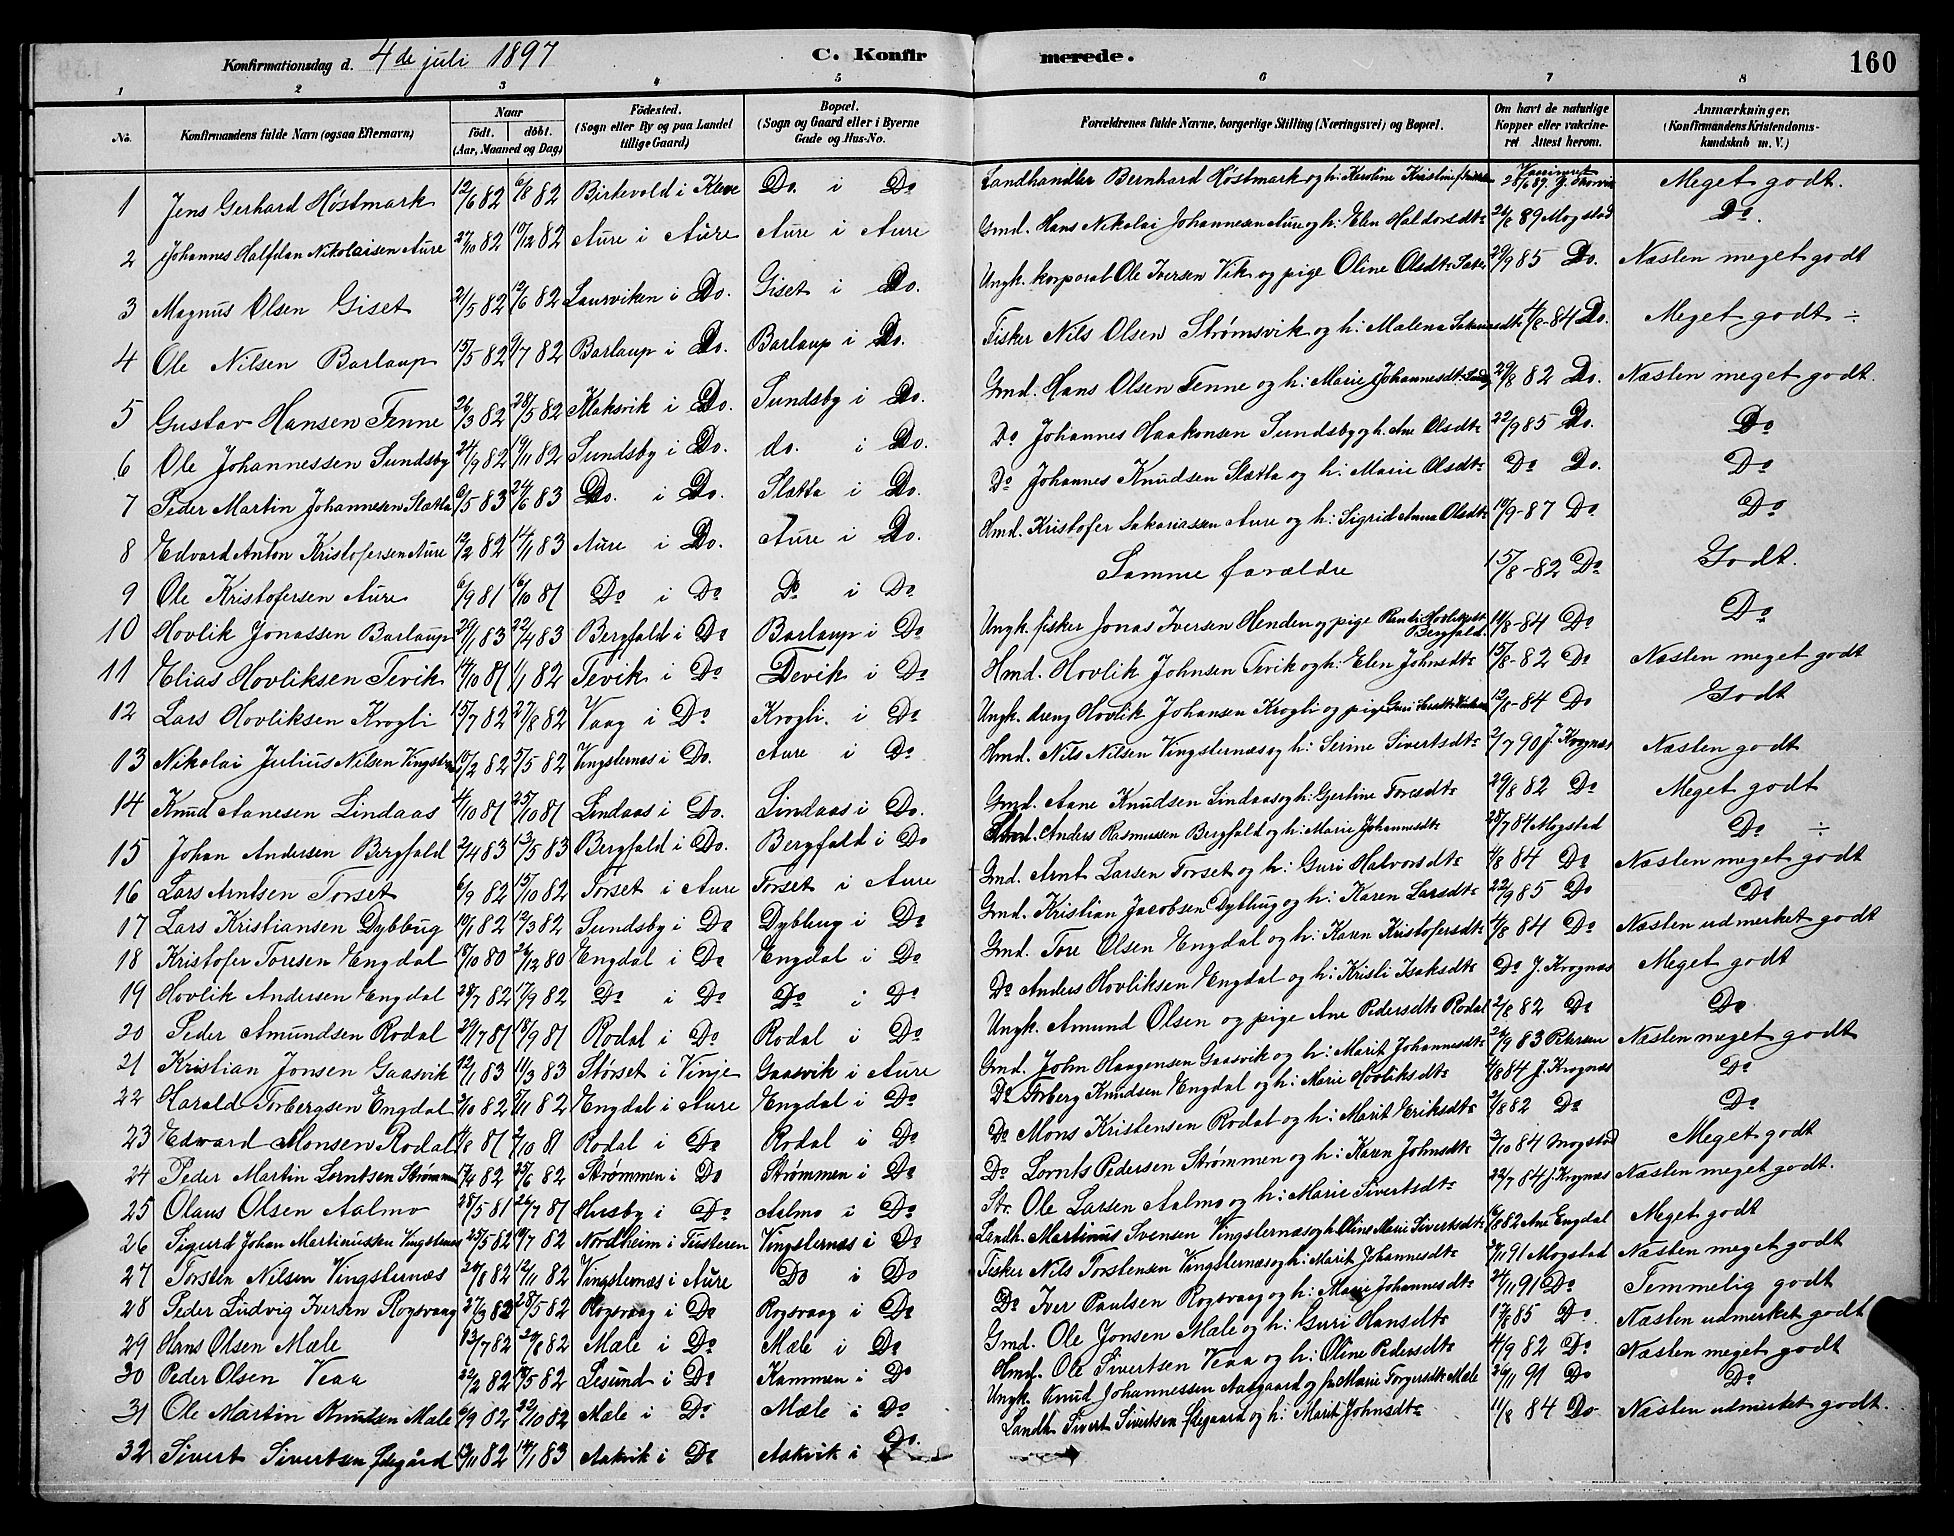 Konfirmationsdag d. 4de juli 1897 C. Konfirmerede. 160
1 2 3 4 5 6 7 8
No. Konfirmandens fulde Navn (ogsaa Efternavn) Naar født. døbt. (Aar, Maaned og Dag) Födested. (Sogn eller By og paa Landet tillige Gaard) Bopæl. (Sogn og Gaard eller i Byerne Gade og Hus-No. Forældrenes fulde Navne, borgerlige Stilling (Næringsvei) og Bopæl. Om havt de naturlige Kopper eller vakcineret Attest herom. Anmærkninger, (Konfirmandens Kristendomskundskab m. V.)
1 Jens Gerhard Høstmark 12/6 82 6/8 82 Birtevold i Do. i Do Landhandler Bernhard Høstmark og h: Karoline Kristine 28/6 89 Meget godt.
2 Johannes Halfdan Nikolaisen Aure 27/10 82 10/12 82 Aure i Aure Aure i Aure Gmd. Hans Nikolai Johannesen Aure og h: Elen Haldorsdtr 89 Mogstad Do.
3 Magnus Olsen Giset 21/5 82 12/6 82 Laurviken i Do. Giset i Do. Ungk. korporal Ole Iversen Vik og pige Oline Olsdtr 29/9 85 Do. Næsten meget godt
4 Ole Nilsen Barlaup 15/5 82 9/7 82 Barlaup i Do. Barlaup i Do. Fisker Nils Olsen Strømsvik og h: Malena 11/8-84 Do. Meget godt ÷
5 Gustav Hansen Tenne 26/3 82 28/5 82 Klaksvik i Do. Sundsby i Do. Gmd. Hans Olsen Tenne og h: Marie Johannesdtr 29/8 82 Do. Næsten meget godt.
6 Ole Johannessen Sundsby 24/9 82 19/11 82 Sundsby i Do. do. i Do. Do Johannes Haakonsen Sundsby og h. Ane Olsdtr 22/9 85 Do. Do
7 Peder Martin Johannesen Sletta 6/5 83 24/6 83 Do. i Do. Sletta i Do. Do Johannes Knudsen Sletta og h: Marie Olsdtr Do Do. Do
8 Edvard Anton Kristofersen Aure 12/2 82 14/1 83 Aure i Do. Aure i Do. Hmd. Kristofer Sakariassen Aure og h: Sigrid Anna Olsdtr 10/9-87 Do Do
9 Ole Kristofersen Aure 6/9 81 16/10 81 Do i Do Do i Do Samme forældre 15/8-82 Do Godt.
10 Hovlik Jonassen Barlaup 29/1 83 22/4 83 Bergfald i Do Barlaup i Do Ungk. fisker Jonas Iversen Henden og pige Bergfald. 11/8-84 Do Do
11 Elias Hovliksen Tevik 14/10 81 1/1 82 Tevik i Do Tevik i Do Hmd. Hovlik Johnsen Tevik og h: Elen Johnsdtr 15/8-82 Do Næsten meget godt
12 Lars Hovliksen Krogli 15/7 82 27/8 82 Vaag i Do Krogli. i Do Ungk. dreng Hovlik Johansen Krogli og pige 12/8-84 Do Godt
13 Nikolai Julius Nilsen Vingsternæs 10/2 82 5/5 82 Vingsternæs i Do. Aure i Do Hmd. Nils Nilsen Vingsternæs og h: Serine Sivertsdtr 2/7 90 J. Krognæs Næsten godt
14 Knud Aanesen Lindaas 4/10 81 25/10 81 Lindaas i Do. Lindaas i Do. Gmd. Aane Knudsen Lindaas og h: Gjertine Toresdtr 29/8 82 Do Meget godt
15 Johan Andersen Bergfald 2/4 83 13/5 83 Bergfald i Do. Bergfald i Do Anders Rasmussen Bergfald og h: Marie Johannesdtr 28/7 84 Mogstad Do ÷
16 Lars Arntsen Torset 6/9 82 15/10 82 Torset i Aure Torset i Aure Gmd. Arnt Larsen Torset og h: Guri Halvorsdtr 4/8 84 Do Næsten meget godt
17 Lars Kristiansen Dybbug 19/1 82 12/3 82 Sundsby i Do Dybbug i Do Gmd. Kristian Jacobsen Dybbug og h: Karen Larsdtr 22/9 85 Do Do
18 Kristofer Toresen Engdal 18/10 80 26/12 80 Engdal i Do Engdal i Do Gmd. Tore Olsen Engdal og h: Karen Kristofersdtr 4/8 84 Do Næsten udmerket godt
19 Hovlik Andersen Engdal 28/7 82 17/9 82 Do i Do Do i Do Do Anders Hovliksen Engdal og h: Kristi Isaksdtr Do J. Krognæs Meget godt
20 Peder Amundsen Rodal 29/7 81 18/9 81 Rodal i Do Rodal i Do Ungk. Amund Olsen og pige Ane Pedersdtr Rodal 2/8 82 Do Do
21 Kristian Jonsen Gaasvik 12/1 83 11/3 83 Storset i Vinje Gaasvik i Aure Gmd. John Haagensen Gaasvik og h: Marit Johannesdtr 26/9 83 Petersen Næsten meget godt
22 Harald Torbergsen Engdal 2/10 82 5/11 82 Engdal i Aure Engdal i Do Do Torberg Knudsen Engdal og h: Marie Hovliksdtr 4/8 84 J. Krognæs Do
23 Edvard Monsen Rodal 14/8 81 2/10 81 Rodal i Do Rodal i Do Do Mons Kristensen Rodal og h: Marit Eriksdtr 2/8 82 Do Do
24 Peder Martin Lorntsen Strømmen 17/4 82 25/6 82 Strømmen i Do Strømmen i Do Do Lornts Pedersen Strømmen og h: Karen Johnsdtr 2/10 84 Mogstad Meget godt
25 Olaus Olsen Aalmo 28/5 81 24/7 81 Husby i Do Aalmo i Do Str. Ole Larsen Aalmo og h: Marie Sivertsdtr 22/7 84 J. Krognæs Næsten meget godt.
26 Sigurd Johan Martinussen Vingsternæs 25/5 82 16/7 82 Nordheim i Tusteren Vingsternæs i Do Landh. Martinus Svensen Vingsternæs og h. Oline Marie Sivertsdtr 6/8 82 Ane Engdal Meget godt
27 Torsten Nilsen Vingsternæs 24/8 82 12/11 82 Vingsternæs i Aure Do i Do Fisker Nils Torstensen Vingsternæs og h: Marit Johannesdtr 2/11 91 Mogstad Næsten meget godt
28 Peder Ludvig Iversen Rogsvaag 27/3 82 28/5 82 Rogsvaag i Do Rogsvaag i Do Do Iver Paulsen Rogsvaag og h: Marie Johannesdtr 24/11 91 Do Temmelig godt
29 Hans Olsen Mæle 13/7 82 20/8 82 Mæle i Do Mæle i Do Gmd. Ole Jonsen Mæle og h: Guri Hansdtr 17/8 85 Do Næsten udmerket godt
30 Peder Olsen Veaa 22/2 82 10/5 82 Lesund i Do Kammen i Do Hmd. Ole Sivertsen Veaa og h: Oline Pedersdtr 4/9 82 Do Næsten meget godt
31 Ole Martin Knutsen Mæle 6/9 82 22/10 82 Mæle i Do Mæle i Do Ungk. Knud Johannessen Aasgaard og Marie Torgersdtr Mæle 26/11 91 Do Do
32 Sivert Sivertsen Ødegård 12/11 82 14/1 83 Aakvik i Do Aakvik i Do. Landh Sivert Sivertsen Ødegaard og h: Marit Johnsdtr 11/8 84 Do Næsten udmerket godt.